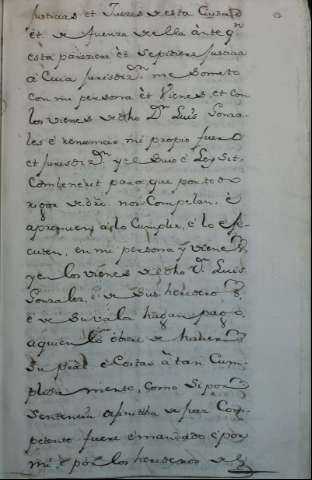 justicias et Jueses desta Ciudad
et de fuera della ante qn
esta paresciere et se pidiere justicia
a Cuia jurisdizn. me someto
con mi persona et vienes, et con
los vienes de dho Dn. Luis Gonza
les e renuncio mi propio fuero
et jurisdizn. y el Ley Sit
Combenerit para que por todo
rigor de dro. nos Compelan, e
apremien a lo Cumplir, e lo ese
cuten, en mi persona y vienes
y en los vienes de dho Dn. Luis
Gonzalez, e de sus herederos
e de su vala hagan pago
a quien lo obiere de haber
Su pral e Costas a tan Cum
plida mente, como si por
Sentencia difinitiba de juez Com
petente fuere e mandado e por
mi e por los herederos de